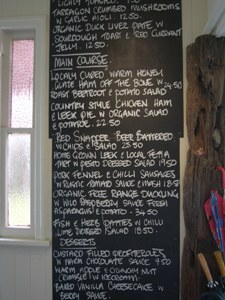 LIGHTLY
TARRAGON CRUMBED MUSHROOMS
W GARLIC AIOLI . 12.50
ORGANIC DUCK LIVER PATE W
SOURDOUGH TOAST & RED CURRANT
JELLY. 12.50.
MAIN COURSE
LOCALLY CURED WARM HONEY
GLAZE HAM OFF THE BONE W
ROAST BEETROOT & POTATO SALAD
COUNTRY STYLE CHICKEN HAM
& LEEK PIE W ORGANIC SALAD
& POTATOE . 22.50
RED SNAPPER BEER BATTERED
W CHIPS & SALAD 23.50
HOME GROWN LEEK & LOCAL FETA
TART W PESTO DRESSED SALAD
PORK FENNEL & CHILLI SAUSAGES
W RUSTIC TOMATO SAUCE & MASH
ORGANIC FREE RANGE DUCKLING
W WILD RASPBERRY SAUCE FRESH
ASPARAGUS & POTATO - 34.50
FISH & HERB PATTIES W CHILLI
LIME DRESSED SALAD 18.50
DESSERTS
CUSTARD FILLED PROFITEROLES
W WARM CHOCOLATE SAUCE
WARM APPLE & COCONUT NUT
CRUMBLE W ICECREAM
BAKED VANILLA CHEESECAKE W
BERRY SAUCE